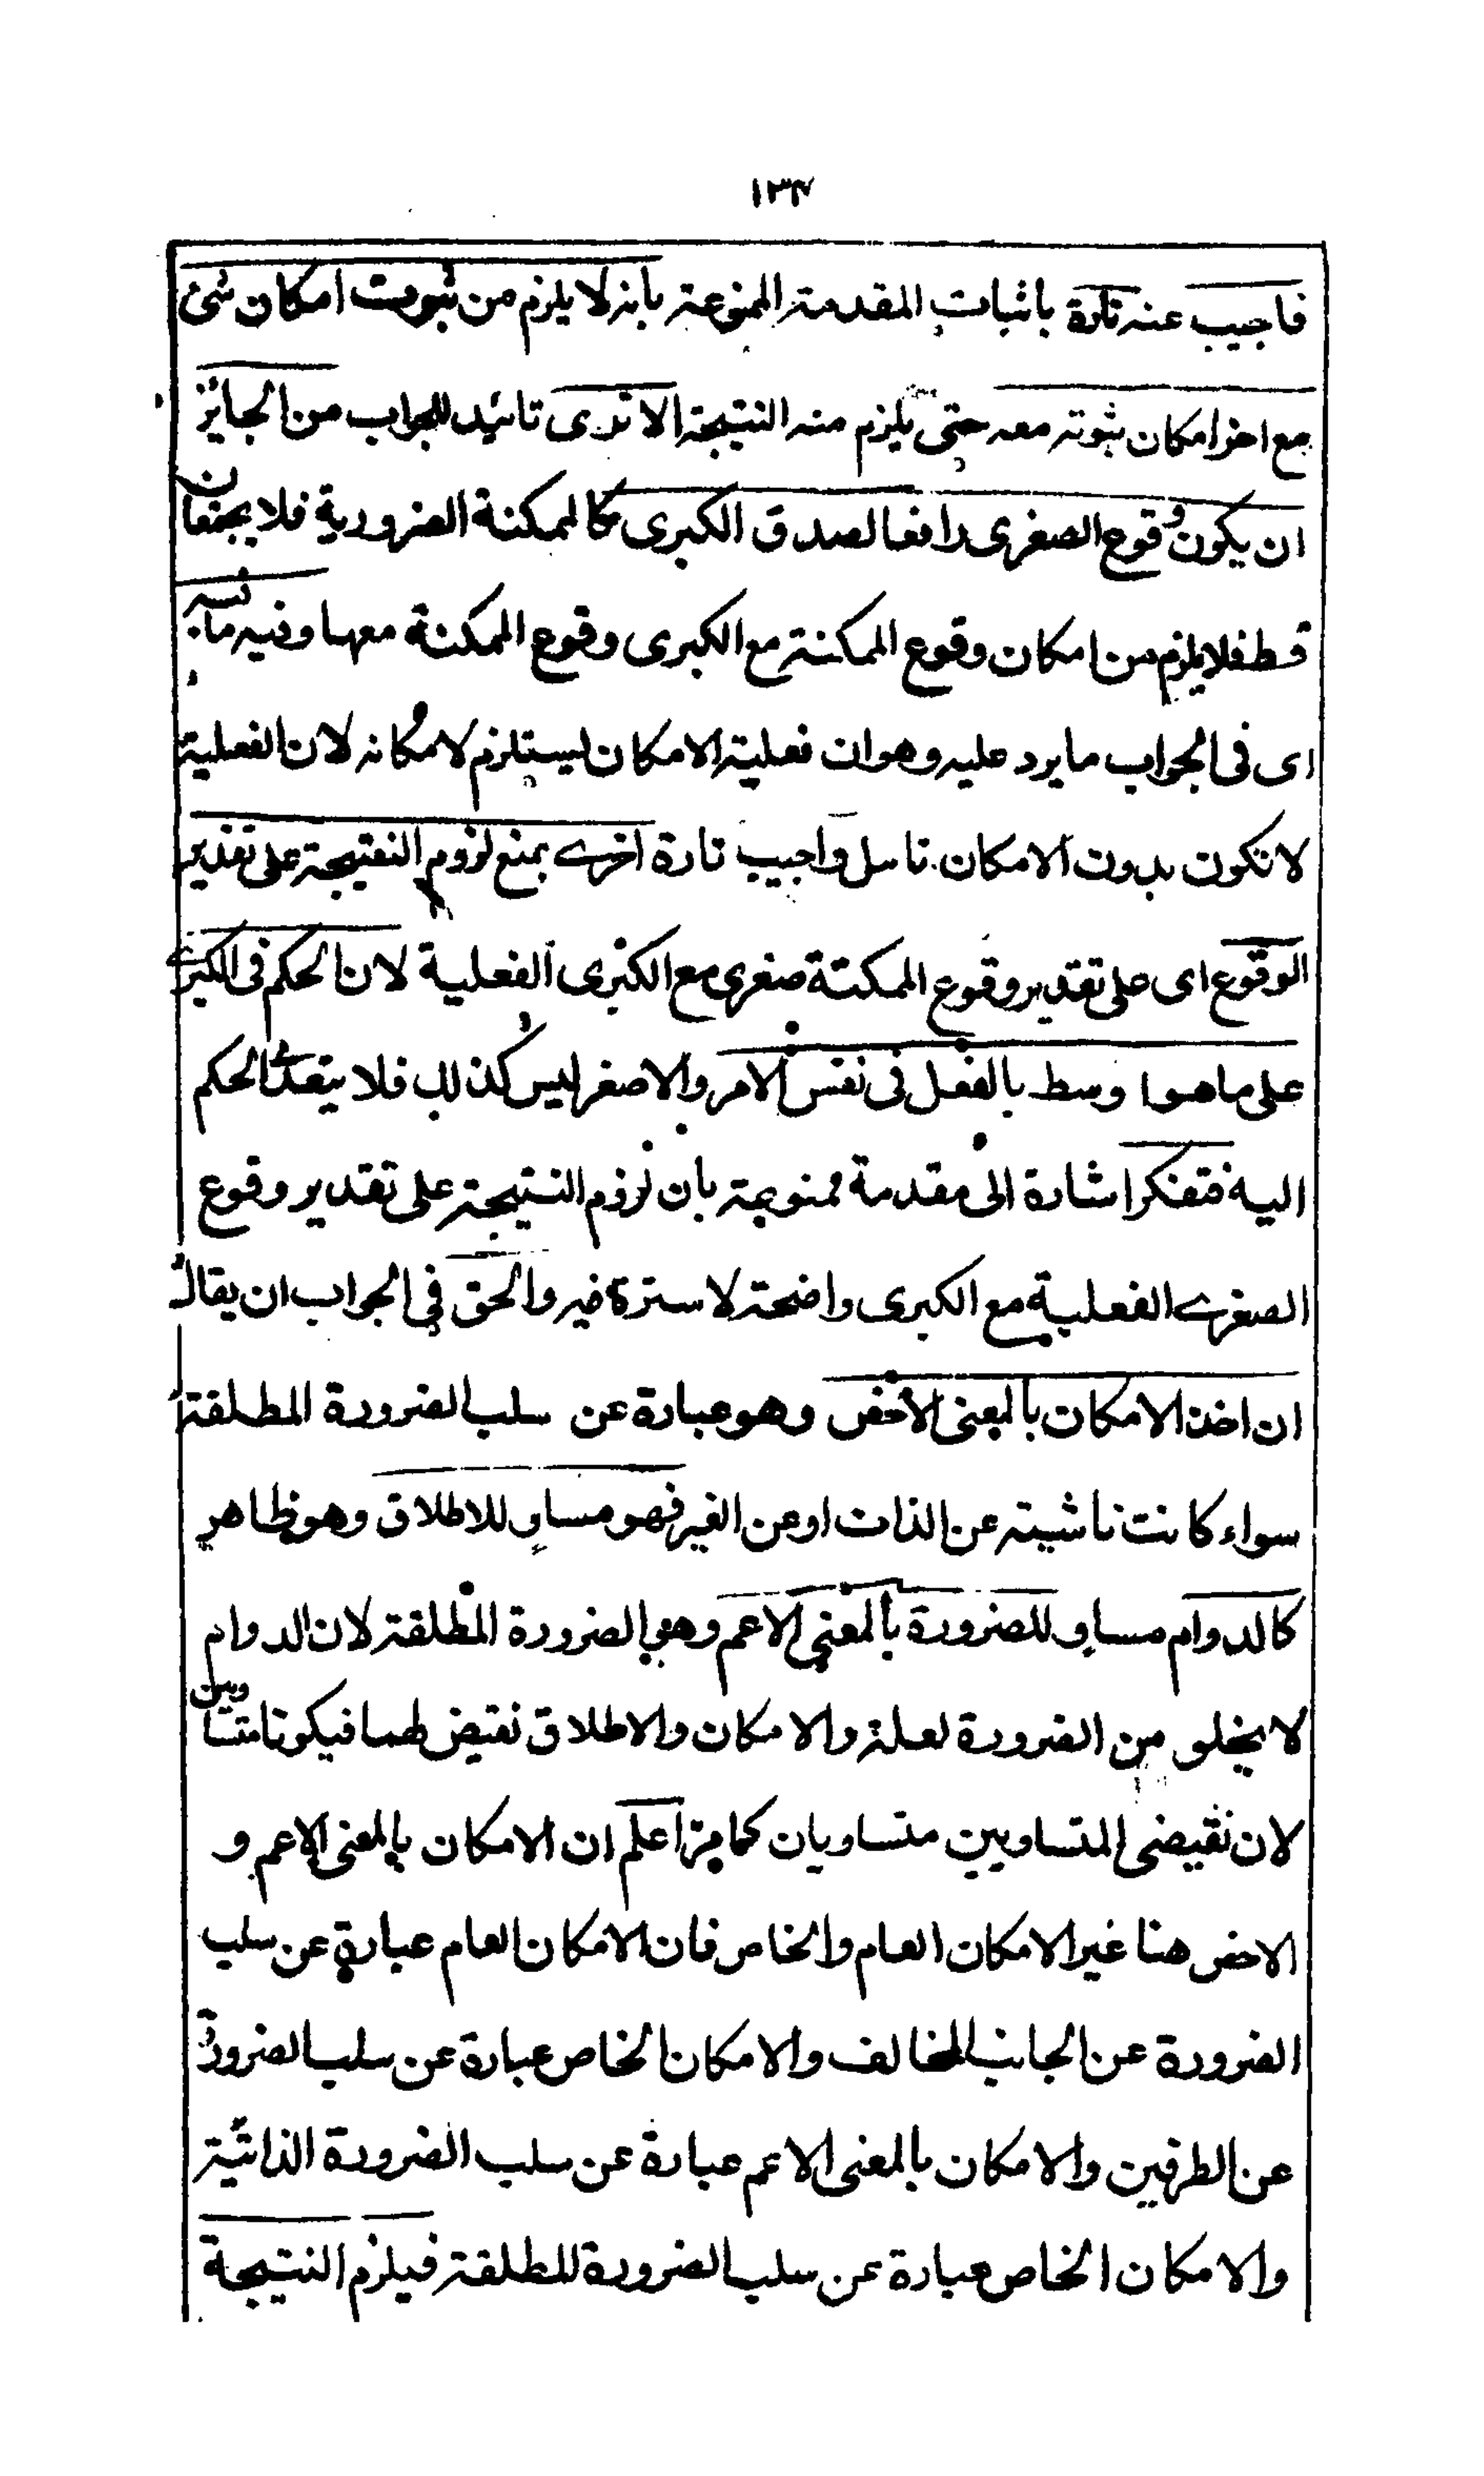 ١٣٤
فاجيب عنه تارة باثبات المقدمة الممنوعة بانه لا يلزم من ثبوت امكان شئ
مع اخر امكان ثبوته معه حتى يلزم منه النتيجة الا ترى تائيد للجواب من الجايز
ان يكون وقوع الصغرى رافعا لصدق الكبرى كالممكنة الضرورية فلا يجتمعان
قط فلا يلزم من امكان وقوع الممكنة مع الكبرى وقوع الممكنة معها وفيه ما فيه
اى فى الجواب ما يرد عليه وهو ان فعلية الامكان ليستلزم لامكانه لان الفعلية
لا تكون بدون الامكان تامل واجيب تارة اخرے بمنع لزوم النتيجة على تقدير
الوقوع اى على تقدير وقوع الممكنة صغرى مع الكبرى الفعلية لان الحكم فى الكبرے
على ما هو اوسط بالفعل فى نفس الامر والاصغر ليس كذلك فلا يتعدى الحكم
اليه فتفكر اشارة الى مقدمة ممنوعة بان لزوم النتيجة على تقدير وقوع
الصغرے الفعلية مع الكبرى واضحة لا سترة فيه والحق فى الجواب ان يقال
ان اخذ الامكان بالمعنى الاخص وهو عبارة عن سلب الضرورة المطلقة
سواء كانت ناشية عن الذات او عن الغير فهو مساو للاطلاق وهو ظاهر
كالدوام مساو للضرورة بالمعنى الاعم وهو الضرورة المطلقة لان الدوام
لا يخلو من الضرورة لعلة والامكان والاطلاق نقيض لهما فيكونا متساويين
لان نقيضى المتساويين متساويان كما مر اعلم ان الامكان بالمعنى الاعم و
الاخص هنا غير الامكان العام والخاص فان الامكان العام عبارة عن سلب
الضرورة عن الجانب المخالف والامكان الخاص عبارة عن سلب الضرورة
عن الطرفين والامكان بالمعنى الاعم عبارة عن سلب الضرورة الذاتية
والامكان الخاص عبارة عن سلب الضرورة للطلقة فيلزم النتيجة